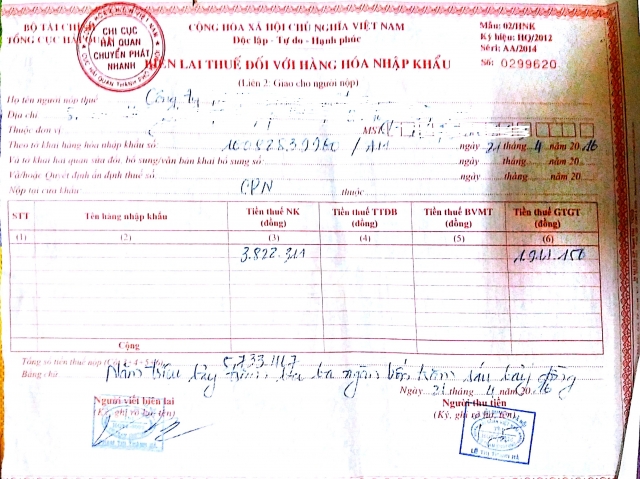 BỘ TÀI CHÍNH
TỔNG CỤC HẢI QUAN
CHI CỤC
HẢI QUAN
CHUYỂN PHÁT
NHANH
CỘNG HÒA XÃ HỘI CHỦ NGHĨA VIỆT NAM
Độc lập - Tự do - Hạnh phúc
Mẫu: 02/HNK
Ký hiệu: HQ/2012
Sêri: AA/2014
Số: 0299620
BIÊN LAI THUẾ ĐỐI VỚI HÀNG HÓA NHẬP KHẨU
(Liên 2: Giao cho người nộp)
Họ tên người nộp thuế Công ty
Địa chỉ
Thuộc đơn vị MST
Theo tờ khai hàng hóa nhập khẩu số: ngày 21 tháng 4 năm 2016
Và tờ khai hải quan sửa đổi, bổ sung/văn bản khai bổ sung số: ngày tháng năm 20
Và/hoặc Quyết định ấn định thuế số: ngày tháng năm 20
Nộp tại cửa khẩu: CPN thuộc
STT Tên hàng nhập khẩu Tiền thuế NK (đồng) Tiền thuế TTĐB (đồng) Tiền thuế BVMT (đồng) Tiền thuế GTGT (đồng)
(1) (2) (3) (4) (5) (6)
3.822.311 1.911.156
Cộng
Tổng số tiền thuế nộp (Cột 3+4+5+6): 5.733.467
Bằng chữ: Năm triệu bảy trăm ba ba ngàn bốn trăm sáu bảy đồng
Ngày 21 tháng 4 năm 2016
Người viết biên lai Người thu tiền
(Ký, ghi rõ họ, tên) (Ký, ghi rõ họ, tên)